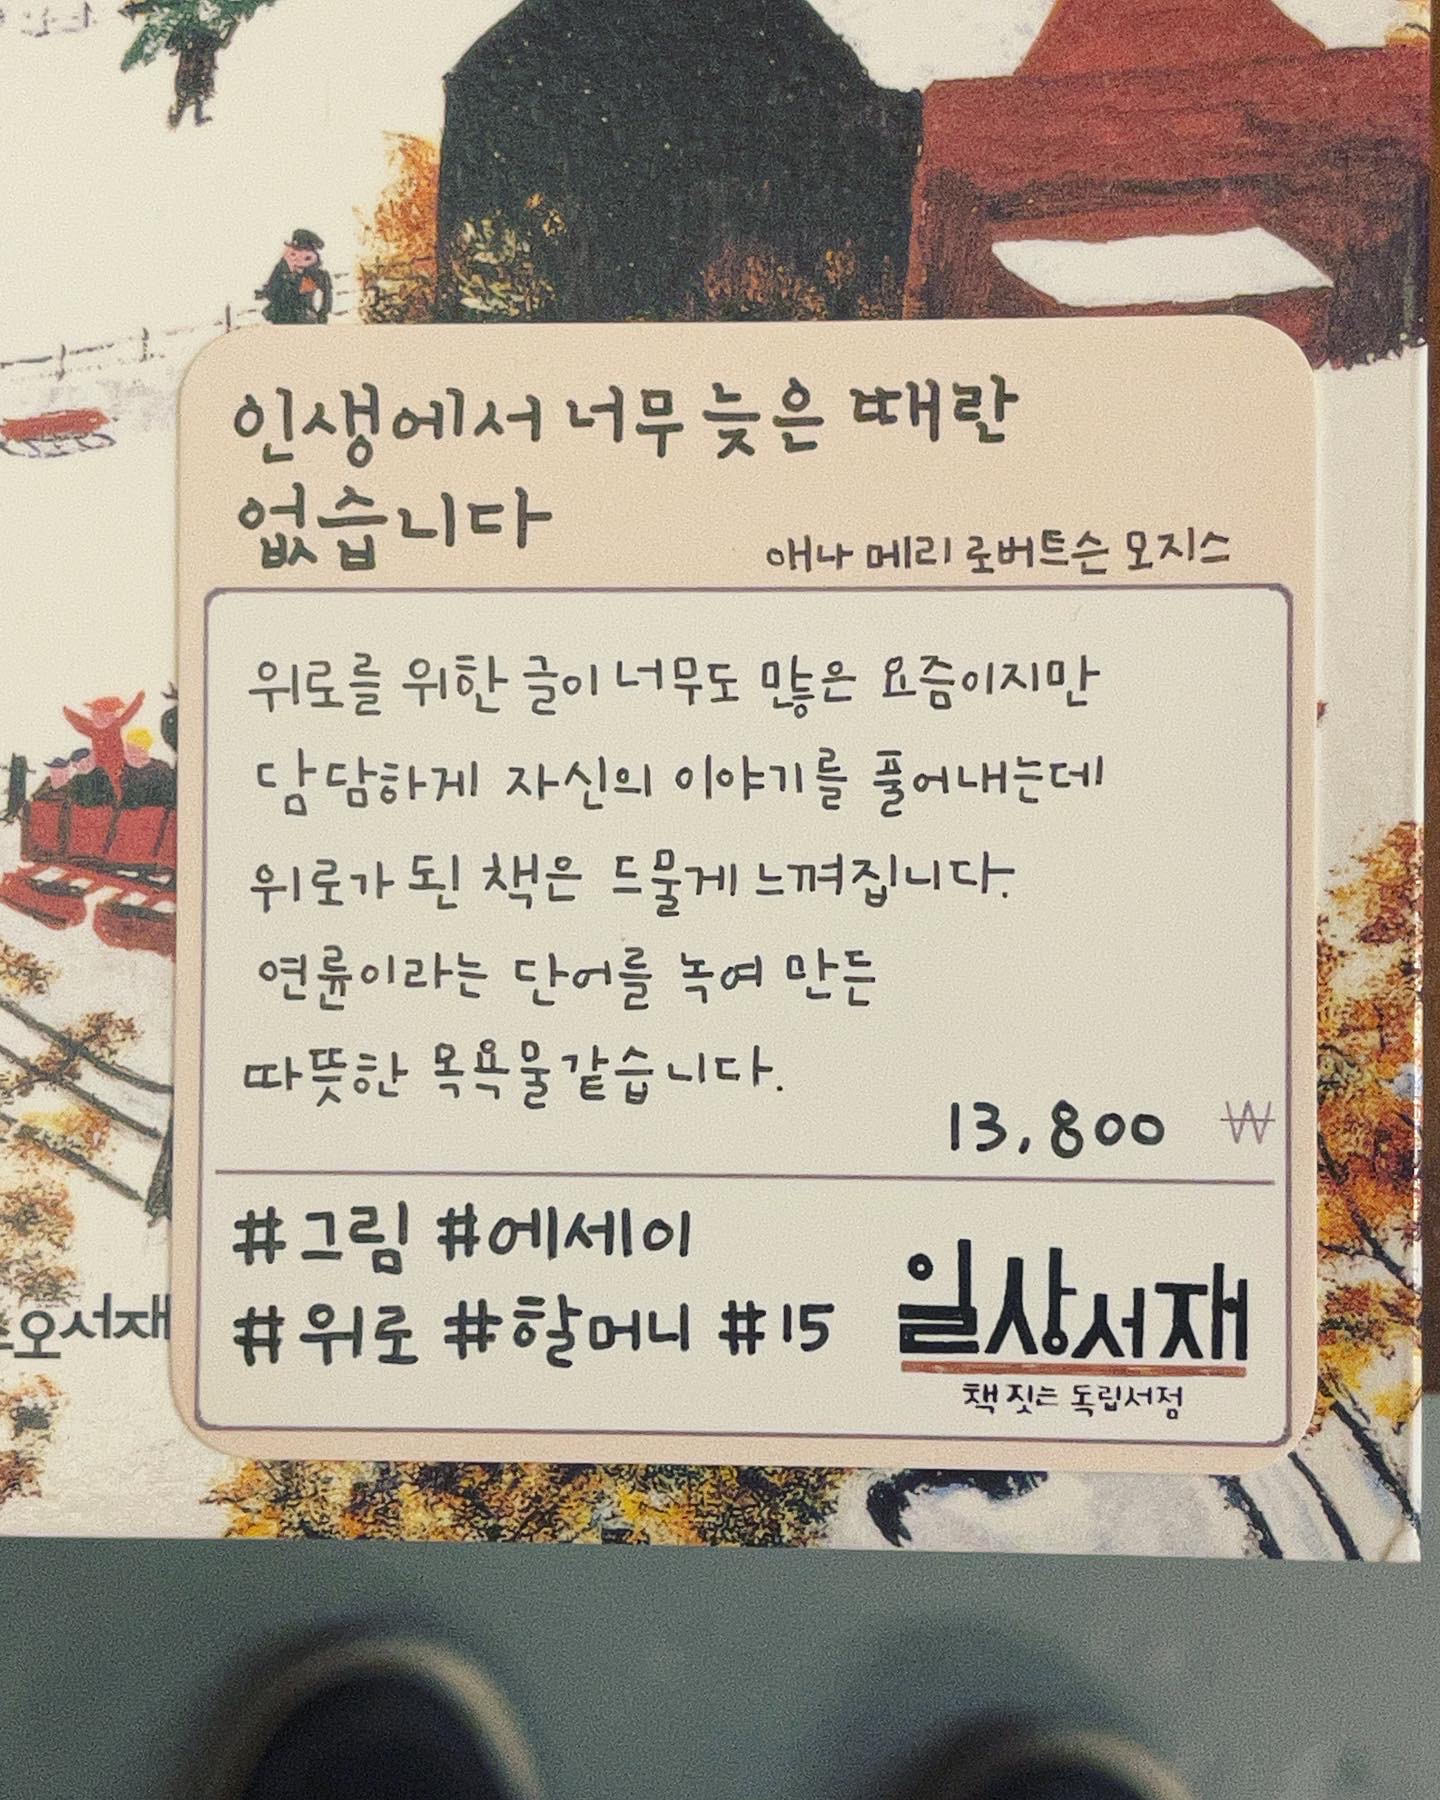 인생에서 너무 늦은 때란
없습니다
애나 메리 로버트슨 모지스
위로를 위한 글이 너무도 많은 요즘이지만
담담하게 자신의 이야기를 풀어내는데
위로가 된 책은 드물게 느껴집니다.
연륜이라는 단어를 녹여 만든
따뜻한 목욕물같습니다.
13,800 ₩
#그림 #에세이
#위로 #할머니 #15
일상서재
책 짓는 독립서점
오서재